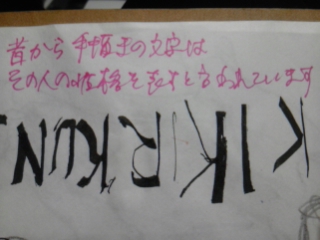 昔から手書きの文字は
その人の性格を表すと言われています
KIKIRKUN.